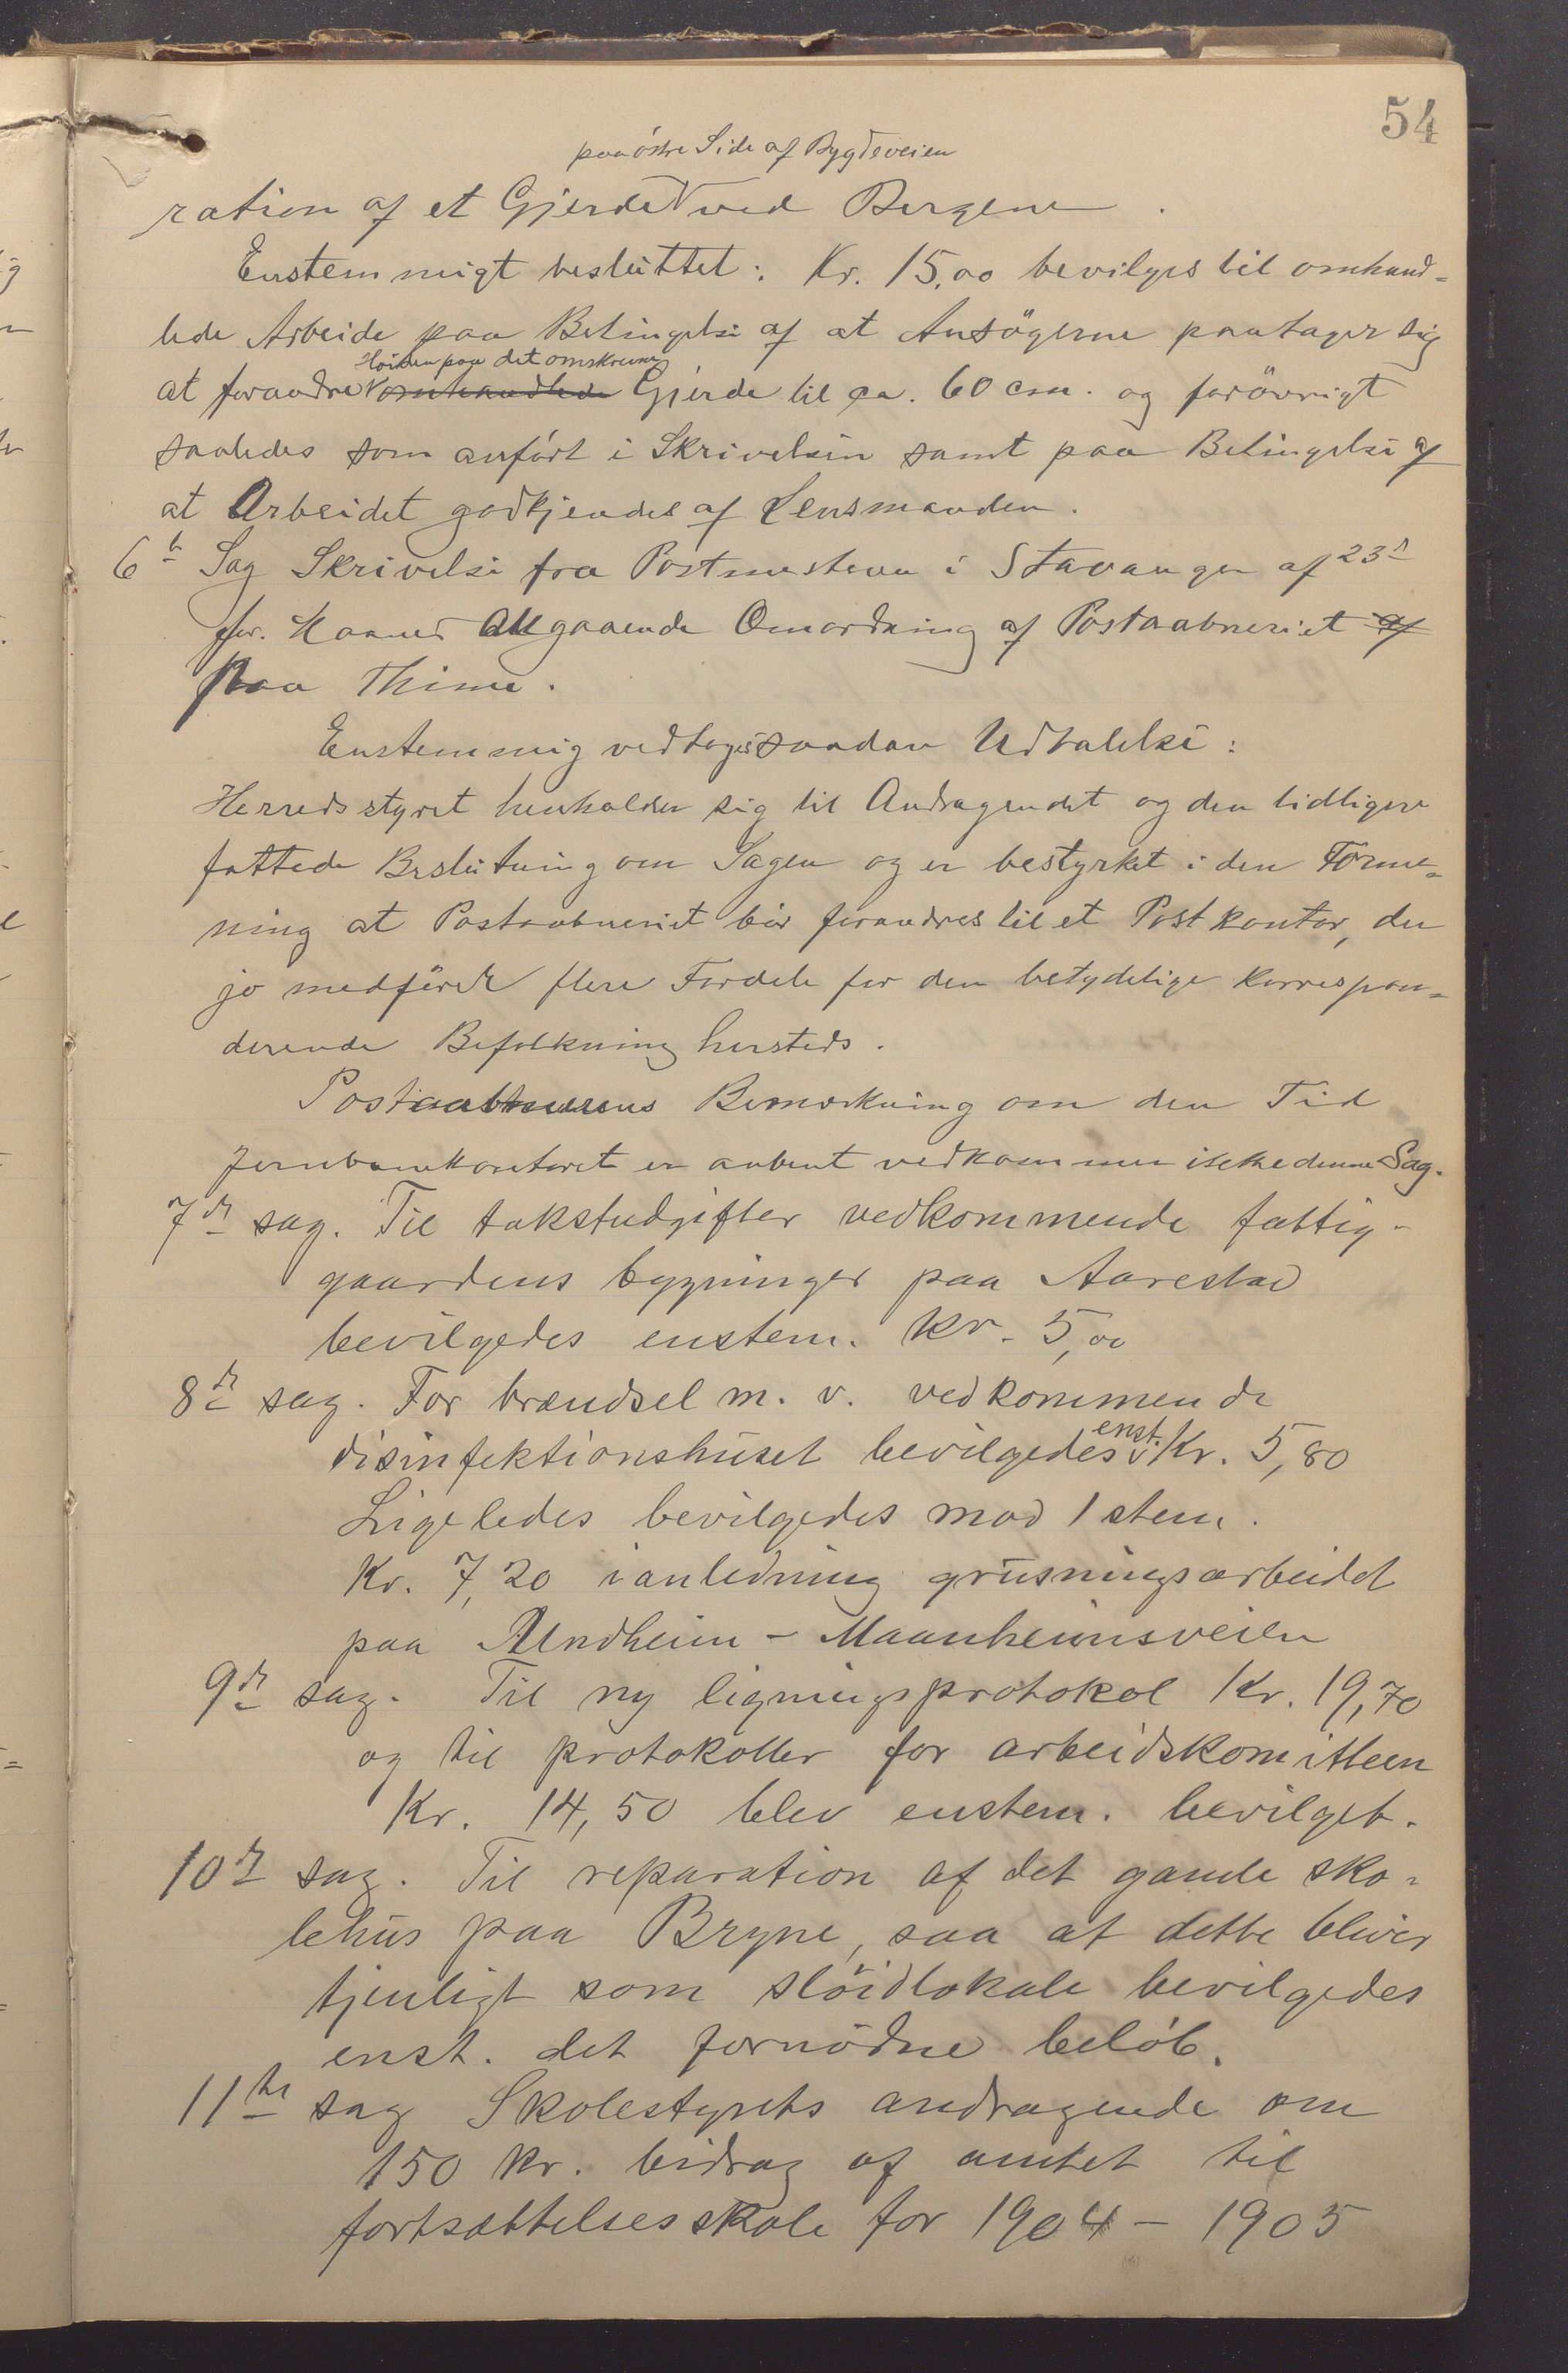 54
paa östre Side af Bygdeveien
ration af et Gjerde ved Bergene.
Enstemmigt besluttet: Kr. 15,00 bevilges til omhand-
lede Arbeide paa Betingelse af at Ansögerne paatager sig
Höiden paa det omskrevne
at forandre omhandlede Gjerde til ca. 60 cm. og forövrigt
saaledes som anfört i Skrivelsen samt paa Betingelse af
at Arbeidet godkjendes af Lensmanden.
6te Sag Skrivelse fra Postmesteren i Stavanger af 23de
f. Maaned angaaende Omordning af Postaabneriet af
paa Thime.
Enstemmig vedtoges saadan Udtalelse:
Herredsstyret henholder sig til Andragendet og den tidligere
fattede Beslutning om Sagen og er bestyrket i den Forme-
ning at Postaabneriet bör forandres til et Postkontor, der
jo medförer flere Fordele for den betydelige korrespon-
derende Befolkning hersteds.
Postaabnerens Bemærkning om den Tid
Jernbanekontoret er aabent vedkommer ikke denne Sag.
7de sag. Til takstudgifter vedkommende fattig-
gaardens bygninger paa Aarestad
bevilgedes enstem. Kr. 5,00
8de sag. For brændsel m. v. vedkommende
enst.
disinfektionshuset bevilgedes Kr. 5,80
Ligeledes bevilgedes mod 1 stem.
Kr. 7,20 i anledning grusningsarbeidet
paa Undheim - Maanheimsveien
9de sag. Til ny ligningsprotokol Kr. 19,70
og til protokoller for arbeidskomitteen
Kr. 14,50 blev enstem. bevilget.
10de sag. Til reparation af det gamle sko-
lehus paa Bryne, saa at dette bliver
tjenligt som slöidlokale bevilgedes
enst. det fornödne belöb.
11te sag Skolestyrets andragende om
150 kr. bidrag af amtet til
fortsættelsesskole for 1904 - 1905